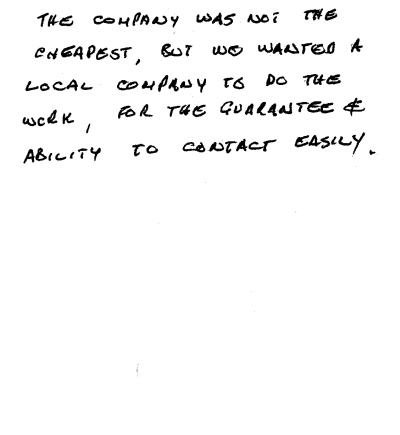 THE COMPANY WAS NOT THE
CHEAPEST, BUT WE WANTED A
LOCAL COMPANY TO DO THE
WORK, FOR THE GUARANTEE &
ABILITY TO CONTACT EASILY.